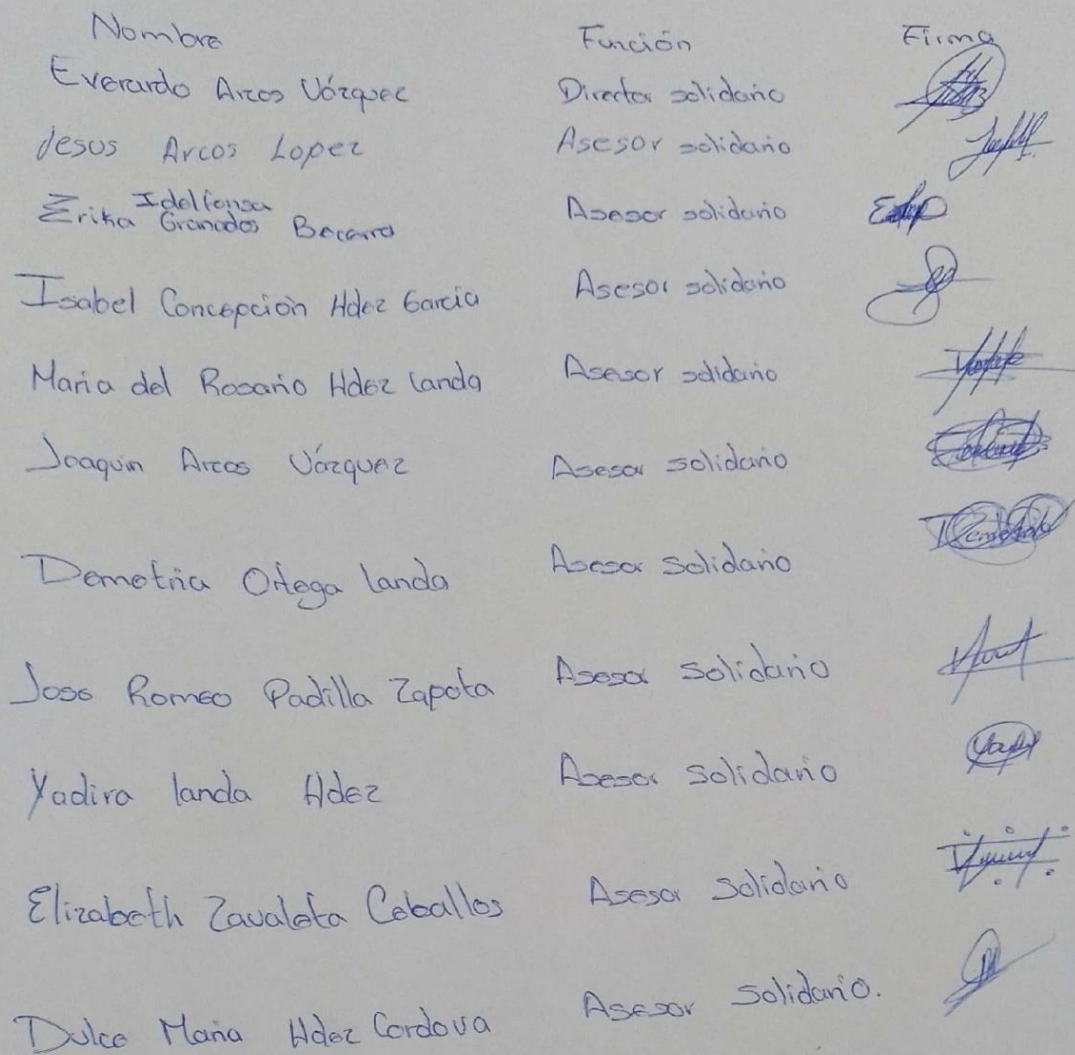 Nombre Función Firma
Everardo Arcos Vázquez Director solidario
Jesus Arcos Lopez Asesor solidario
Idelfonsa
Erika Granados Becerra Asesor solidario
Isabel Concepción Hdez Garcia Asesor solidario
Maria del Rosario Hdez Landa Asesor solidario
Joaquin Arcos Vázquez Asesor solidario
Demetria Ortega Landa Asesor solidario
Jose Romeo Padilla Zapota Asesor solidario
Yadira Landa Hdez Asesor solidario
Elizabeth Zavaleta Ceballos Asesor solidario
Dulce Maria Hdez Cordova Asesor solidario.